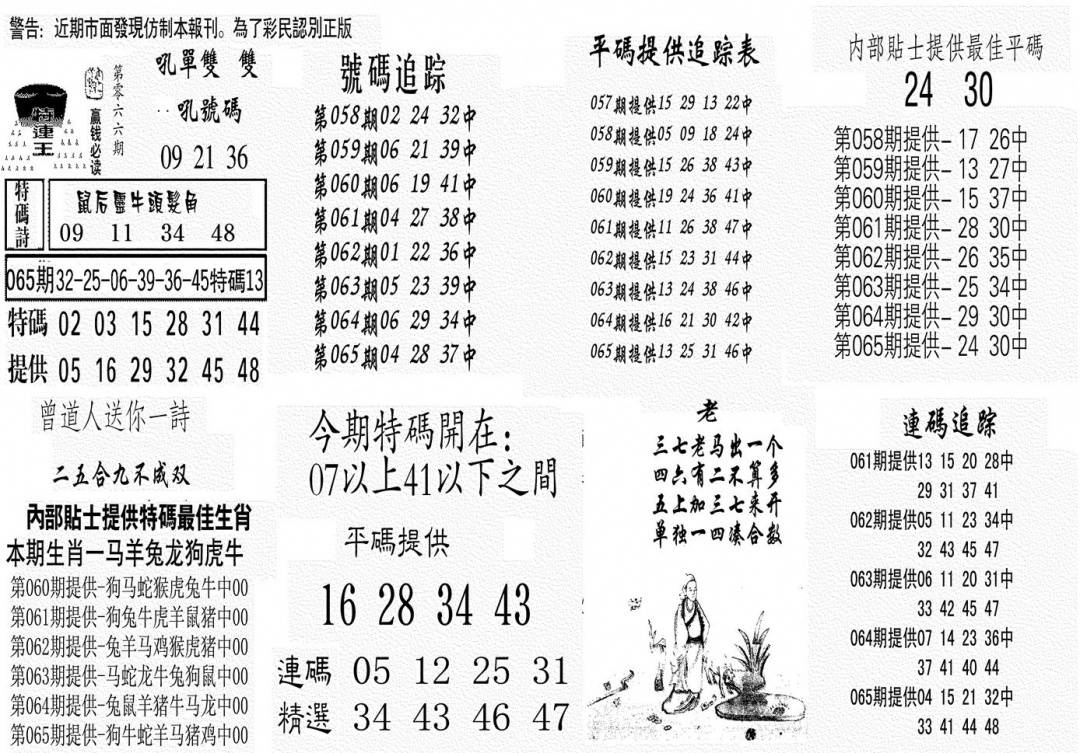 警告: 近期市面發現仿制本報刊。為了彩民認別正版
特連王
贏钱必读
第零六六期
吼單雙 雙
吼號碼
09 21 36
特碼詩
鼠后靈牛頭髮角
09 11 34 48
065期32-25-06-39-36-45特碼13
特碼 02 03 15 28 31 44
提供 05 16 29 32 45 48
號碼追踪
第058期02 24 32中
第059期06 21 39中
第060期06 19 41中
第061期04 27 38中
第062期01 22 36中
第063期05 23 39中
第064期06 29 34中
第065期04 28 37中
平碼提供追踪表
057期提供15 29 13 22中
058期提供05 09 18 24中
059期提供15 26 38 43中
060期提供19 24 36 41中
061期提供11 26 38 47中
062期提供15 23 31 44中
063期提供13 24 38 46中
064期提供16 21 30 42中
065期提供13 25 31 46中
内部貼士提供最佳平碼
24 30
第058期提供- 17 26中
第059期提供- 13 27中
第060期提供- 15 37中
第061期提供- 28 30中
第062期提供- 26 35中
第063期提供- 25 34中
第064期提供- 29 30中
第065期提供- 24 30中
曾道人送你一詩
二五合九不成双
內部貼士提供特碼最佳生肖
本期生肖一马羊兔龙狗虎牛
第060期提供-狗马蛇猴虎兔牛中00
第061期提供-狗兔牛虎羊鼠猪中00
第062期提供-兔羊马鸡猴虎猪中00
第063期提供-马蛇龙牛兔狗鼠中00
第064期提供-兔鼠羊猪牛马龙中00
第065期提供-狗牛蛇羊马猪鸡中00
今期特碼開在:
07以上41以下之間
平碼提供
16 28 34 43
連碼 05 12 25 31
精選 34 43 46 47
老
三七老马出一个
四六有二不算多
五上加三七来开
单独一四凑合数
連碼追踪
061期提供13 15 20 28中
29 31 37 41
062期提供05 11 23 34中
32 43 45 47
063期提供06 11 20 31中
33 42 45 47
064期提供07 14 23 36中
37 41 40 44
065期提供04 15 21 32中
33 41 44 48